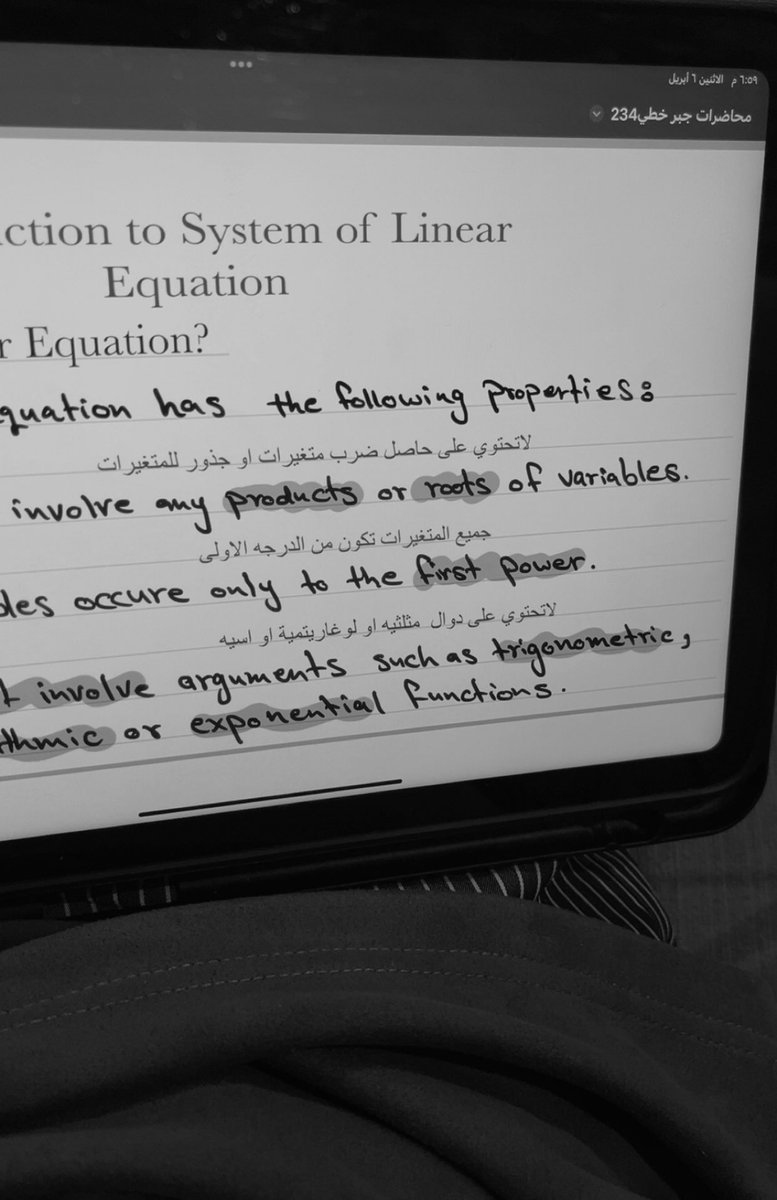 ٦:٥٩ م الاثنين ٦ أبريل
محاضرات جبر خطي234
ction to System of Linear
Equation
r Equation?
quation has the following properties:
لاتحتوي على حاصل ضرب متغيرات او جذور للمتغيرات
involve any products or roots of variables.
جميع المتغيرات تكون من الدرجه الاولى
bles occure only to the first power.
لاتحتوي على دوال مثلثيه او لوغاريتمية او اسيه
t involve arguments such as trigonometric,
ithmic or exponential functions.